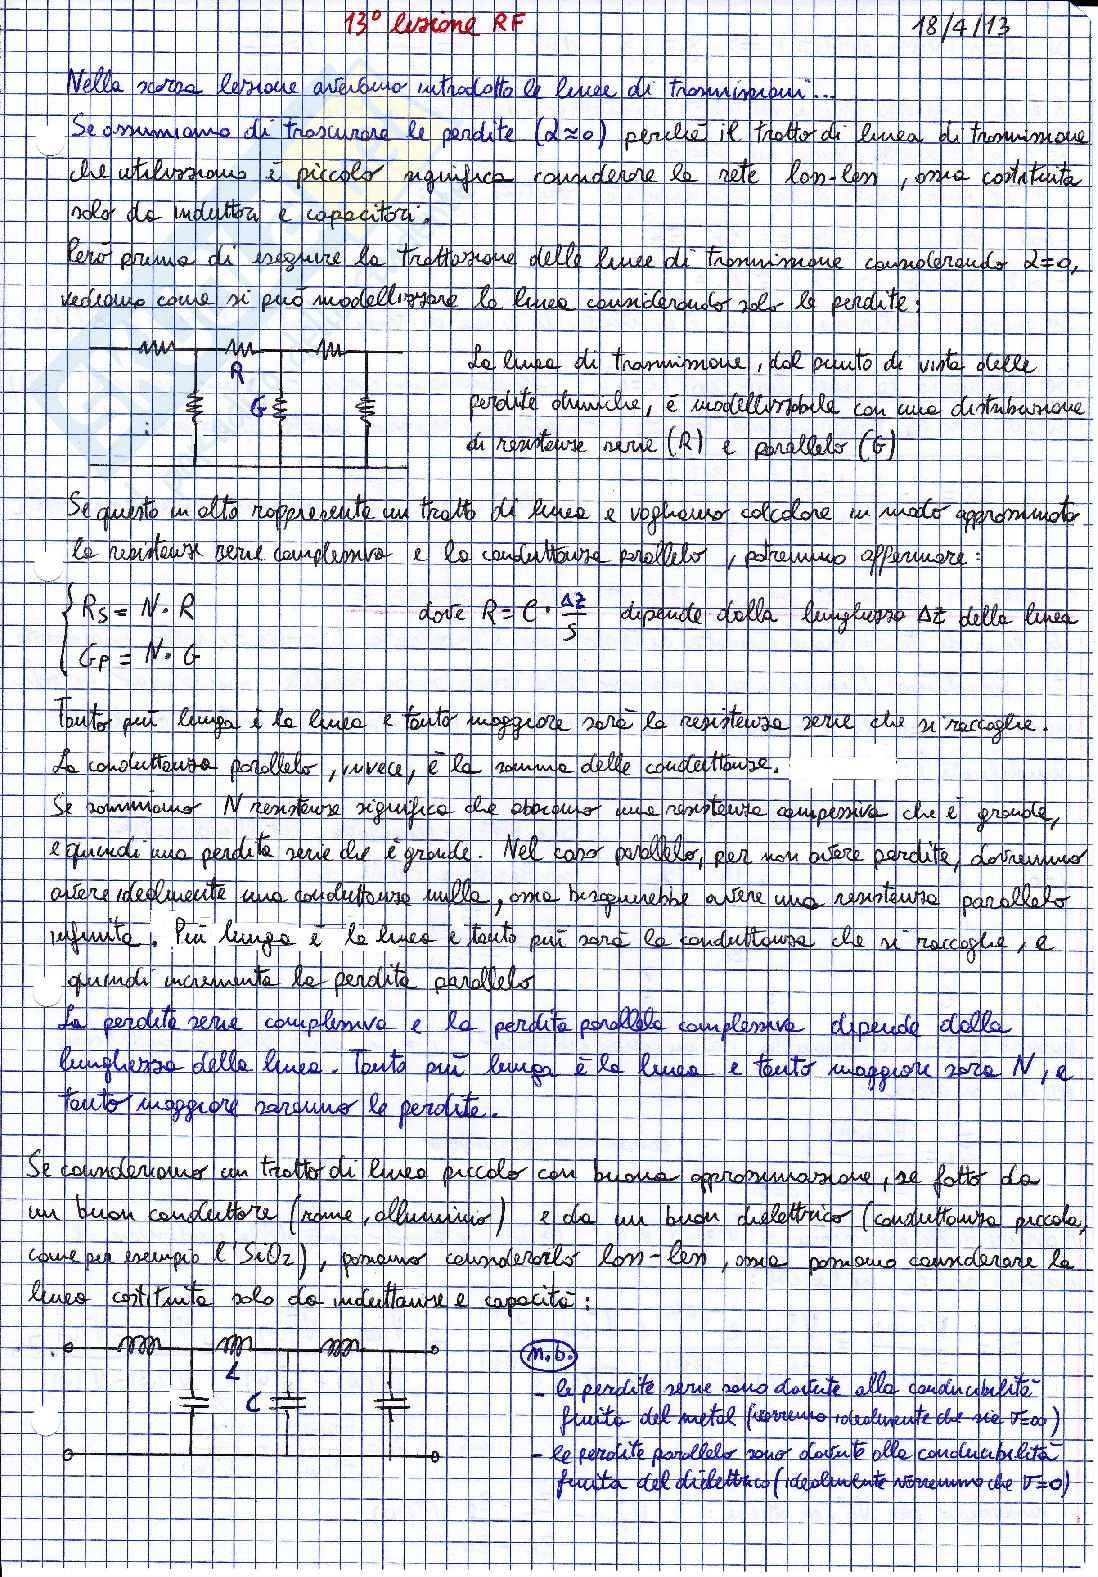 13° lezione RF
18/4/13
Nella scorsa lezione avevamo introdotto le linee di trasmissioni...
Se assumiamo di trascurare le perdite (α≈0) perché il tratto di linea di trasmissione
che utilizziamo è piccolo significa considerare la rete loss-less, ossia costituita
solo da induttori e capacitori.
Però prima di eseguire la trattazione delle linee di trasmissione considerando α=0,
vediamo come si può modellizzare la linea considerando solo le perdite:
R
G
La linea di trasmissione, dal punto di vista delle
perdite ohmiche, è modellizzabile con una distribuzione
di resistenze serie (R) e parallelo (G)
Se questo in alto rappresenta un tratto di linea e vogliamo calcolare in modo approssimato
la resistenza serie complessiva e la conduttanza parallelo, potremmo affermare:
Rs = N · R
Gp = N · G
dove R = ρ · Δz/S dipende dalla lunghezza Δz della linea
Tanto più lunga è la linea e tanto maggiore sarà la resistenza serie che si raccoglie.
La conduttanza parallelo, invece, è la somma delle conduttanze.
Se sommiamo N resistenze significa che abbiamo una resistenza compessiva che è grande,
e quindi una perdita serie che è grande. Nel caso parallelo, per non avere perdite, dovremmo
avere idealmente una conduttanza nulla, ossia bisognerebbe avere una resistenza parallelo
infinita. Più lunga è la linea e tanto più sarà la conduttanza che si raccoglie, e
quindi incrementa la perdita parallelo
La perdita serie complessiva e la perdita parallelo complessiva dipende dalla
lunghezza della linea. Tanto più lunga è la linea e tanto maggiore sarà N, e
tanto maggiore saranno le perdite.
Se consideriamo un tratto di linea piccolo con buona approssimazione, se fatto da
un buon conduttore (rame, alluminio) e da un buon dielettrico (conduttanza piccola,
come per esempio l'SiO2), possiamo considerarlo loss-less, ossia possiamo considerare la
linea costituita solo da induttanze e capacità:
L
C
n.b.
- le perdite serie sono dovute alla conducibilità
finita del metal (vorremmo idealmente che sia σ=∞)
- le perdite parallelo sono dovute alla conducibilità
finita del dielettrico (idealmente vorremmo che σ=0)